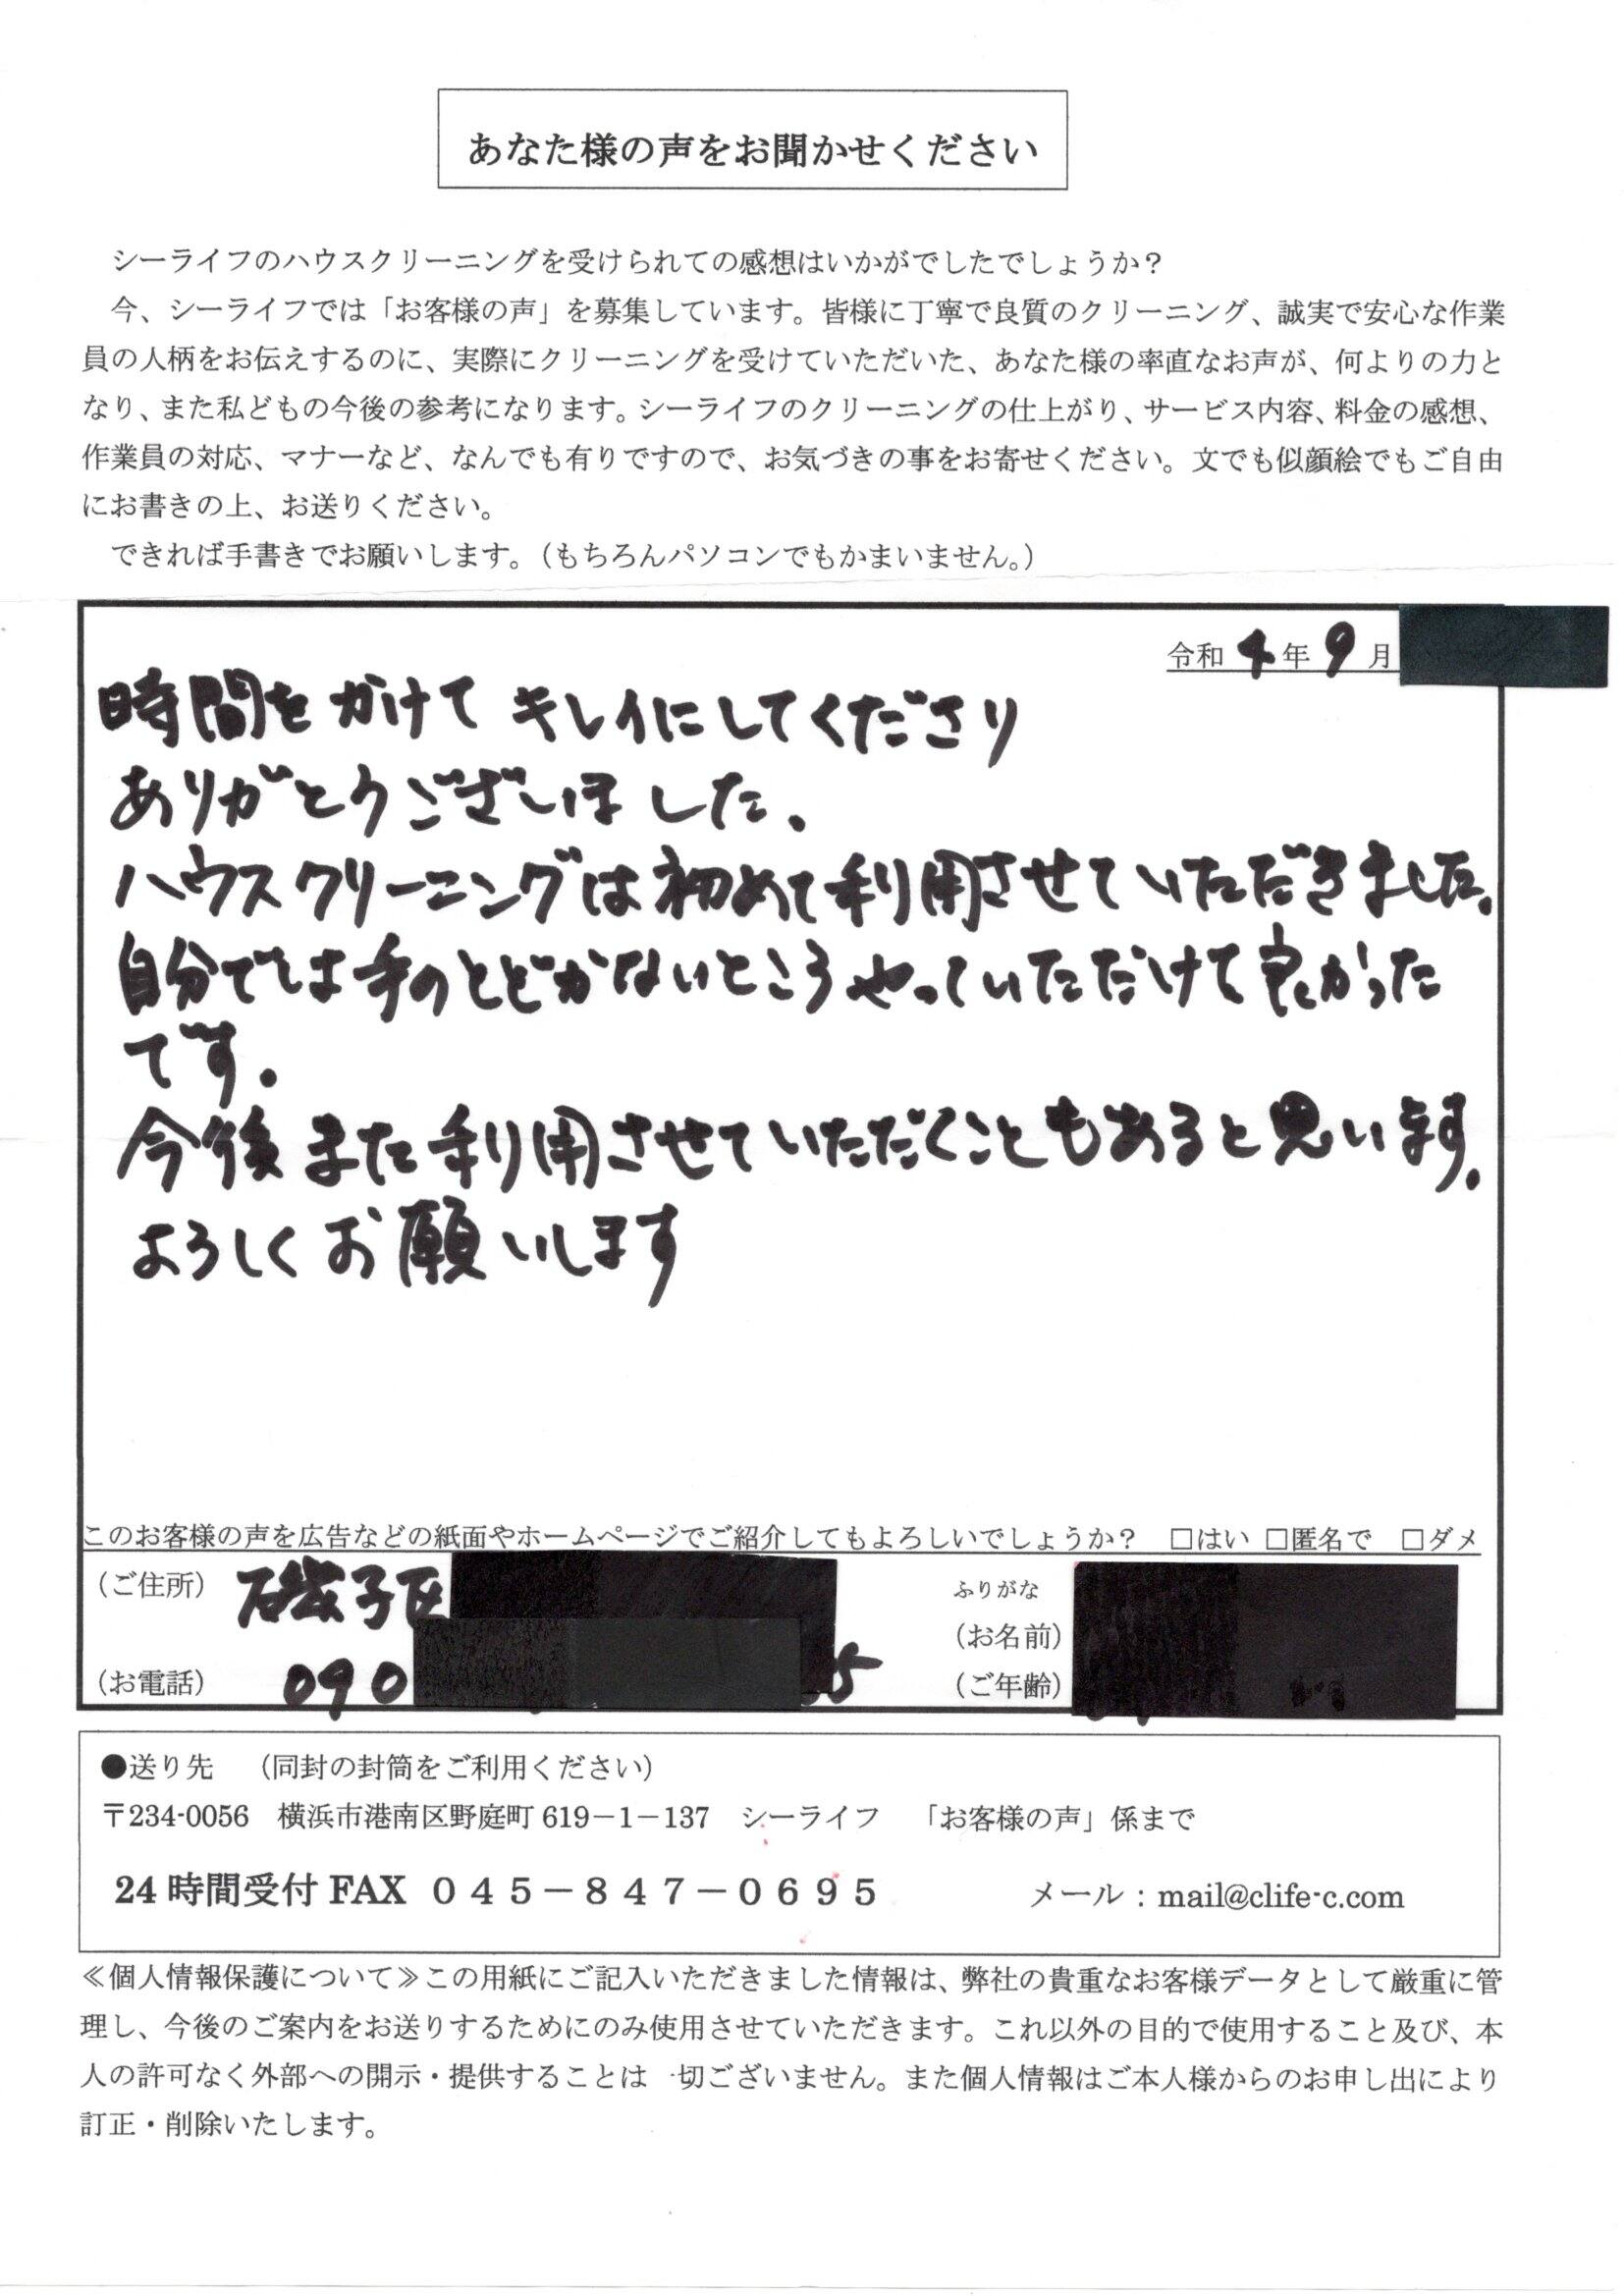 あなた様の声をお聞かせください
シーライフのハウスクリーニングを受けられての感想はいかがでしたでしょうか？
今、シーライフでは「お客様の声」を募集しています。皆様に丁寧で良質のクリーニング、誠実で安心な作業
員の人柄をお伝えするのに、実際にクリーニングを受けていただいた、あなた様の率直なお声が、何よりの力と
なり、また私どもの今後の参考になります。シーライフのクリーニングの仕上がり、サービス内容、料金の感想、
作業員の対応、マナーなど、なんでも有りですので、お気づきの事をお寄せください。文でも似顔絵でもご自由
にお書きの上、お送りください。
できれば手書きでお願いします。（もちろんパソコンでもかまいません。）
令和 4 年 9 月
時間をかけて キレイにしてくださり
ありがとうございました。
ハウスクリーニングは初めて利用させていただきました。
自分では手のとどかないところやっていただけて良かった
です。
今後また利用させていただくこともあると思います。
よろしくお願いします
このお客様の声を広告などの紙面やホームページでご紹介してもよろしいでしょうか？ □はい □匿名で □ダメ
（ご住所） 磯子区
ふりがな
（お名前）
（お電話） 090 5
（ご年齢）
●送り先 （同封の封筒をご利用ください）
〒234-0056 横浜市港南区野庭町 619－1－137 シーライフ 「お客様の声」係まで
24 時間受付 FAX ０４５－８４７－０６９５ メール：mail@clife-c.com
≪個人情報保護について≫この用紙にご記入いただきました情報は、弊社の貴重なお客様データとして厳重に管
理し、今後のご案内をお送りするためにのみ使用させていただきます。これ以外の目的で使用すること及び、本
人の許可なく外部への開示・提供することは一切ございません。また個人情報はご本人様からのお申し出により
訂正・削除いたします。